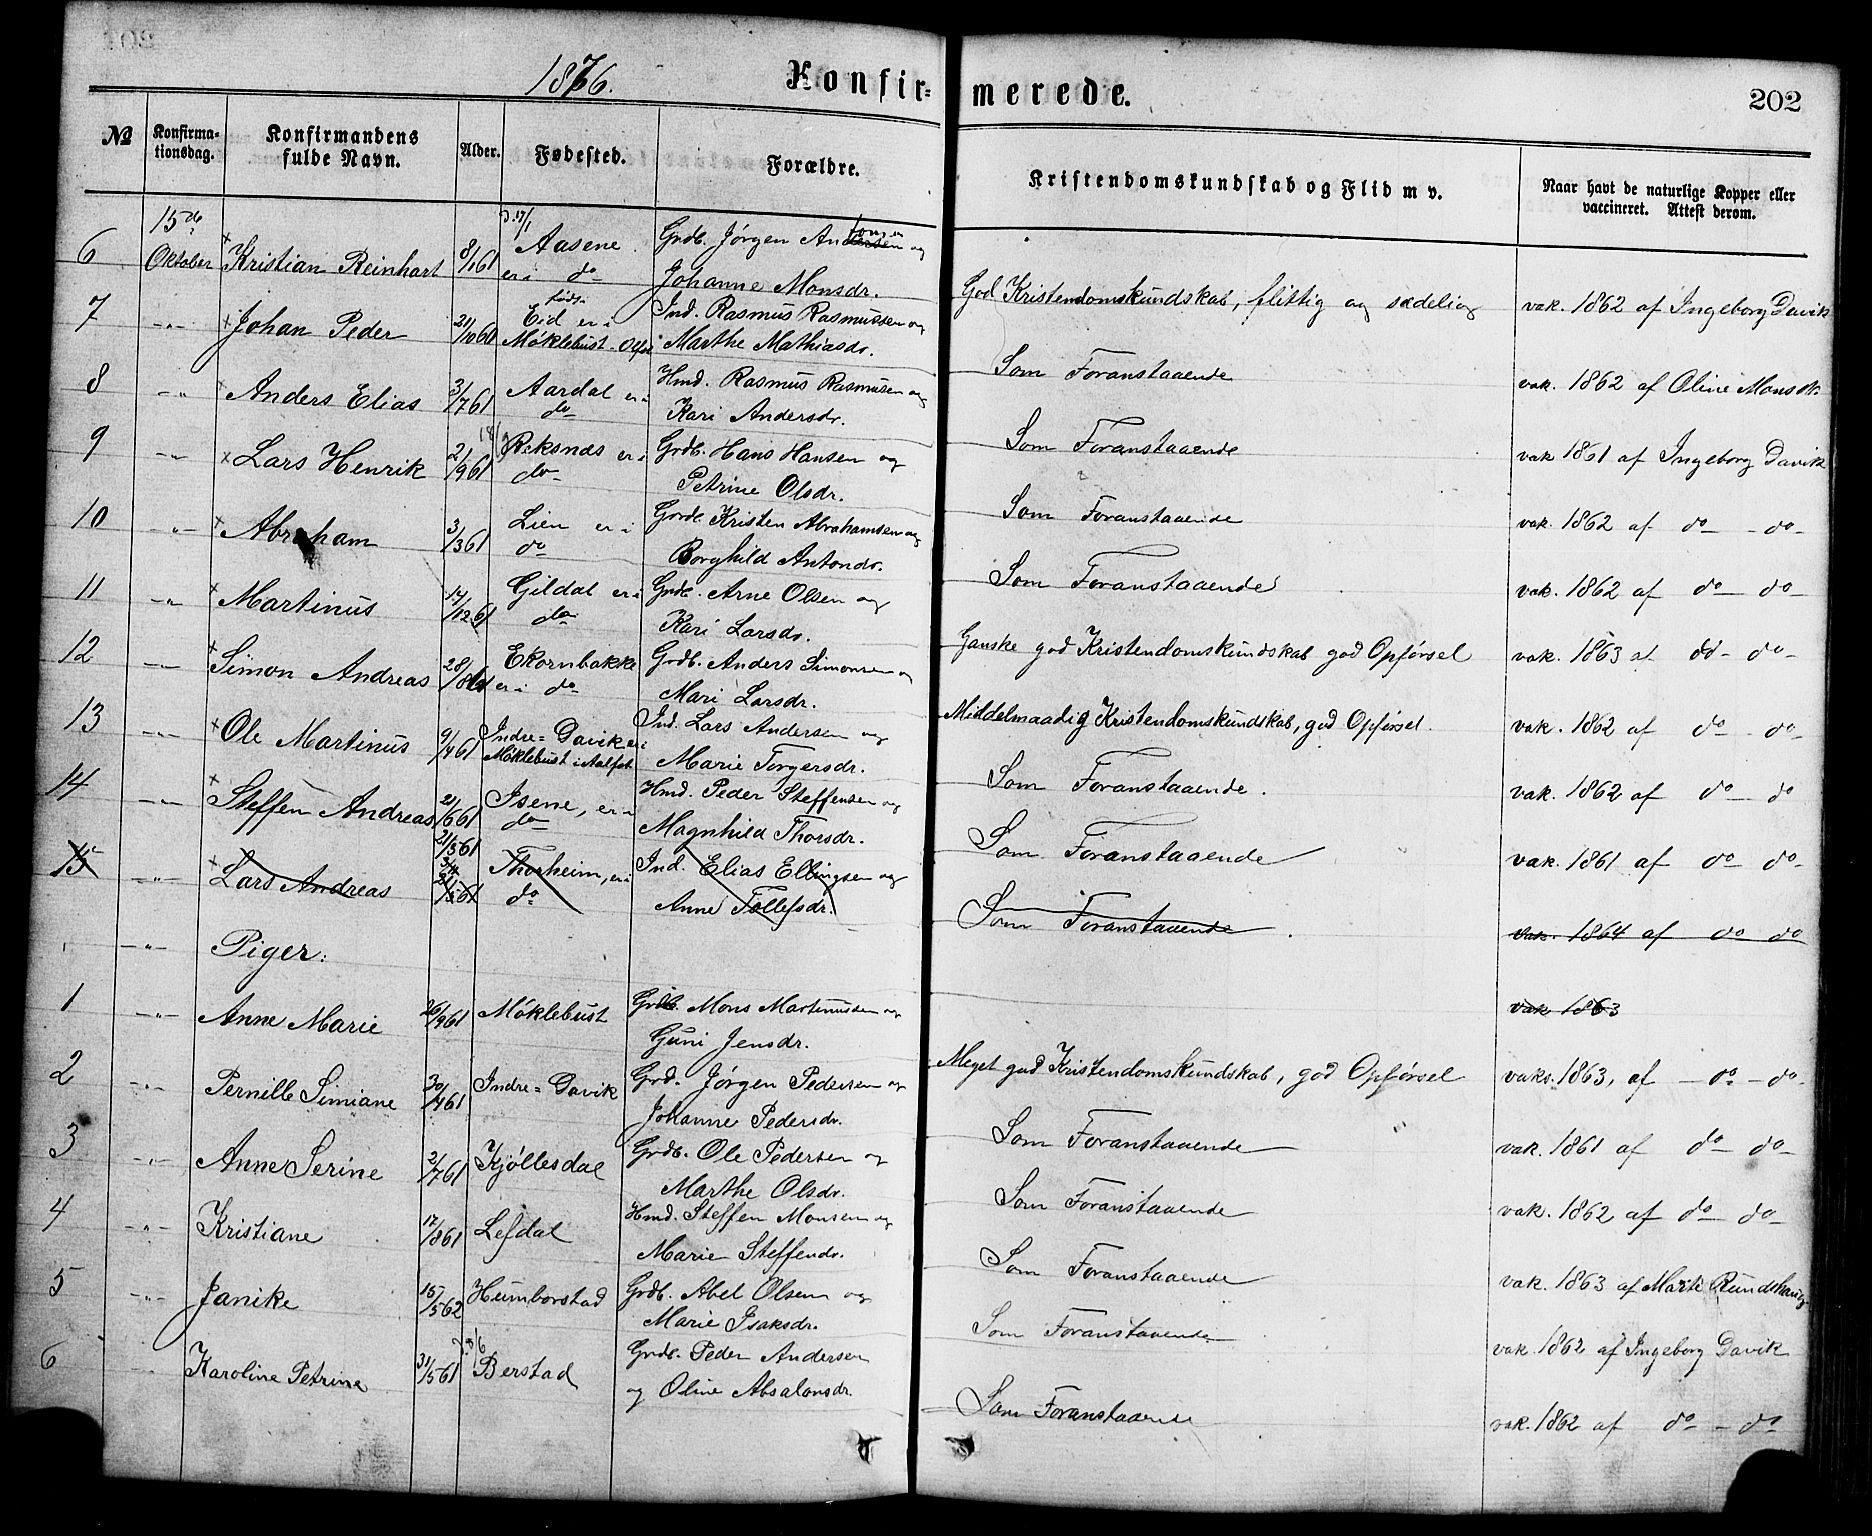 1876.
Konfir-merede.
202
№
Konfirma-tionsdag.
Konfirmandens fulde Navn.
Alder.
Fødested.
Forældre.
Kristendomskundskab og Flid m v.
Naar havt de naturlige Kopper eller vaccineret. Attest derom.
6 15de Oktober × Kristian Reinhart 8/1 61 d. 17/1 Aasene er i do Grdb. Jørgen Andersen og
Johanne Monsdr.
God Kristendomskundskab, flittig og sædelig vak. 1862 af Ingeborg Davik
7 -"- × Johan Peder 21/10 61 født Eid er i Møklebust Grdb. Ind. Rasmus Rasmussen og
Marthe Mathiasdr.
Som Foranstaaende vak. 1862 af Oline Monsdr.
8 -"- × Anders Elias 3/7 61 Aardal er i do Hmd. Rasmus Rasmusen og
Kari Andersdr.
Som Foranstaaende vak 1861 af Ingeborg Davik
9 -"- × Lars Henrik 2/9 61 Reksnæs er i do Grdb. Hans Hansen og
Petrine Olsdr.
Som Foranstaaende vak. 1862 af do - do -
10 -"- × Abraham 3/3 61 Lien er i do Grdb. Kristen Abrahamsen og
Borghild Antondr.
Som Foranstaaende vak. 1862 af do - do -
11 -"- × Martinus 14/12 61 Gildal er i do Grdb. Arne Olsen og
Kari Larsdr.
Ganske god Kristendomskundskab god Opførsel vak. 1863 af do - do -
12 -"- × Simon Andreas 28/8 61 Ekornbakke er i do Grdb. Anders Simonsen og
Mari Larsdr.
Middelmaadig Kristendomskundskab, god Opførsel. vak. 1862 af do - do -
13 -"- × Ole Martinus 9/4 61 Indre = Davik er i Møklebust i Aalfot Ind. Lars Andersen og
Marie Torgersdr.
Som Foranstaaende. vak. 1862 af do - do
14 -"- × Steffen Andreas 2/6 61 Isene, er i do Hmd. Peder Steffensen og
Magnhild Thorsdr.
Som Foranstaaende vak. 1861 af do do -
15 -"- × Lars Andreas 21/5 61 Thorheim, er i do Ind. Elias Ellingsen og
Anne Tollefsdr.
Som Foranstaaende. vak. 1864 af do do
-"- Piger:
vak 1863
1 -"- Anne Marie 26/9 61 Møklebust Grdb. Mons Martinussen og
Guni Jensdr.
Meget god Kristendomskundskab, god Opførsel vaks. 1863, af - do - do -
2 -"- Pernille Simiane 30/4 61 Indre = Davik Grd. Jørgen Pedersen og
Johanne Pedersdr.
Som Foranstaaende vak. 1861 af do - do -
3 -"- Anne Serine 2/7 61 Kjøllesdal Grdb. Ole Pedersen og
Marthe Olsdr.
Som Foranstaaende vak. 1862 af do - do -
4 -"- Kristiane 17/8 61 Lefdal Hmd. Steffen Monsen og
Marie Steffendr.
Som Foranstaaende vak. 1863 af Marte Rundhaug
5 -"- Janike 15/5 62 Humborstad Grdb. Abel Olsen og
Marie Isaksdr.
Som Foranstaaende vak. 1862 af Ingeborg Davik
6 -"- Karoline Petrine 31/5 61 Berstad Grdb. Peder Andersen
og Oline Absalonsdr.
Som Foranstaaende vak. 1862 af do - do